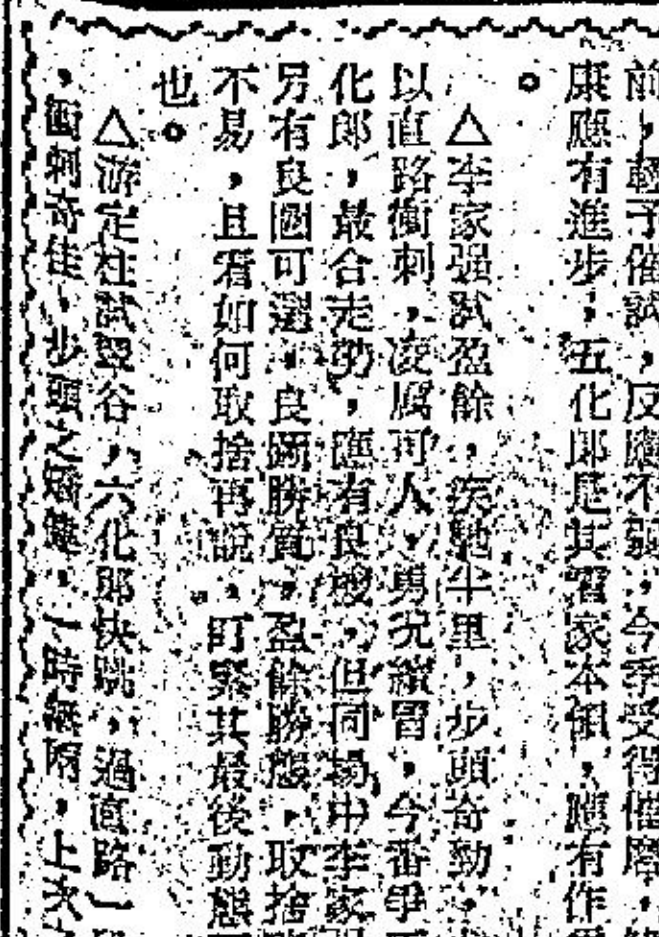 前，輕予催試，反應不弱，今季受得催磨，
康應有進步，五化郎是其看家本領，應有作
。
△李家强試盈餘，疾馳半里，步頭奇勁，
以直路衝刺，凌厲可人，勇況續冒，今番爭
化郎，最合走勢，應有良機，但同場中李家
另有良圖可選，良圖勝質，盈餘勝態，取捨
不易，且看如何取捨再說，盯緊其最後動態
也。
△游定柱試翠谷，六化郎快跳，過直路一
，衝刺奇佳，步頭之矯健，一時無兩，上次